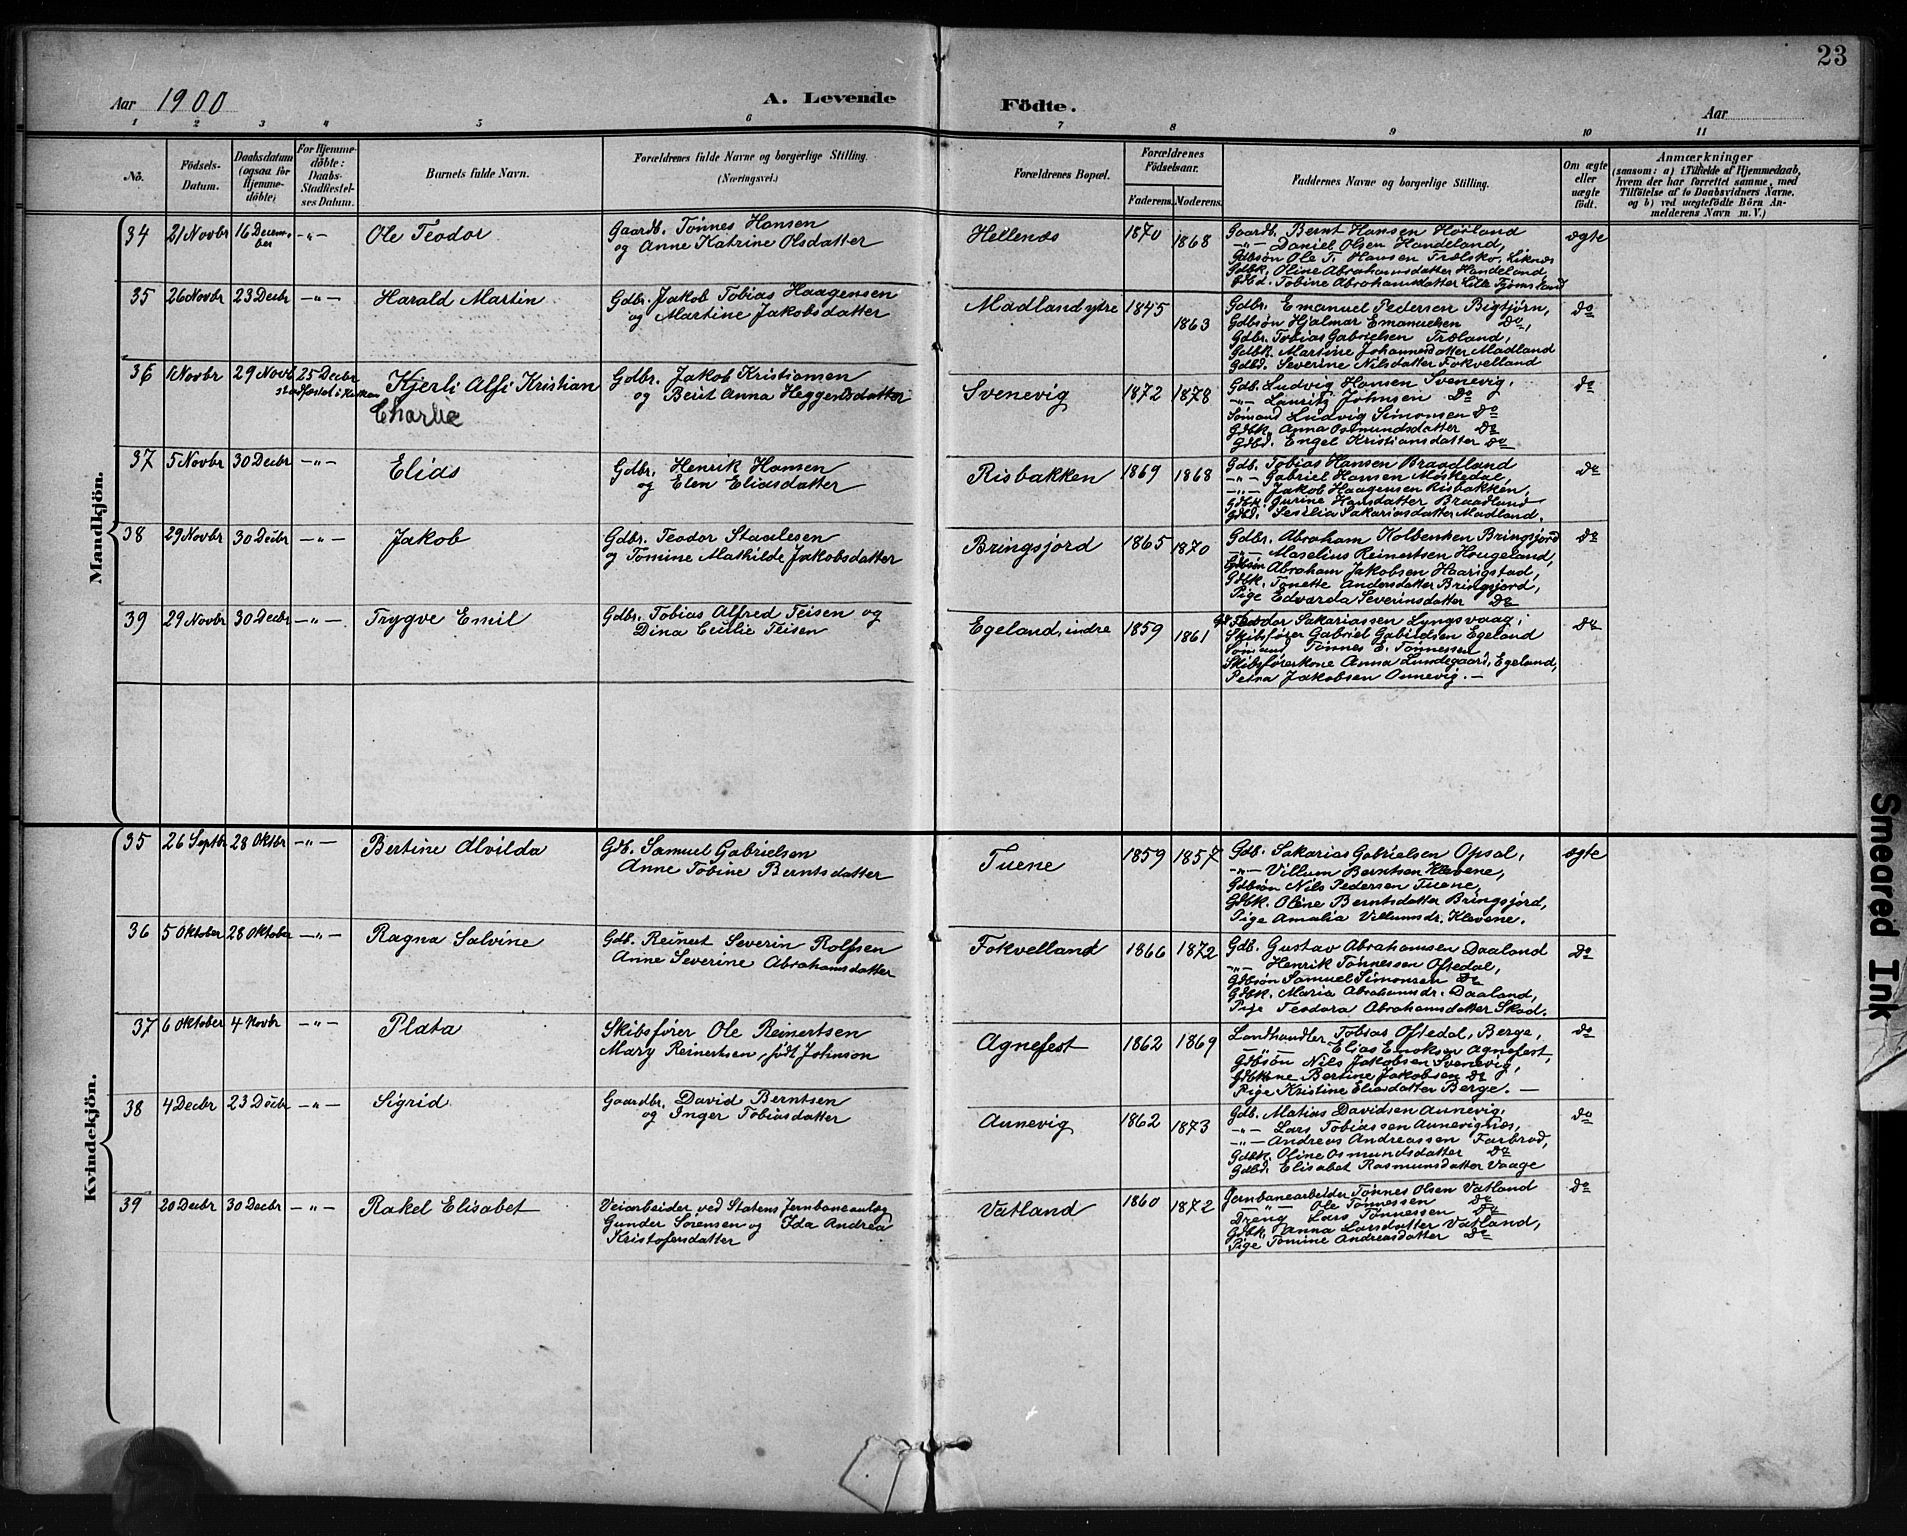 23
Aar 1900 A. Levende Födte. Aar
1 2 3 4 5 6 7 8 9 10 11
No. Födsels-Datum. Daabsdatum (ogsaa för Hjemmedöbte) For Hjemmedöbte: Daabs-Stadfæstelses Datum. Barnets fulde Navn. Forældrenes fulde Navne og borgerlige Stilling. (Næringsvei.) Forældrenes Bopæl. Forældrenes Födselsaar. Faderens. Moderens. Faddernes Navne og borgerlige Stilling. Om ægte eller uægte födt. Anmærkninger (saasom: a) i Tilfælde af Hjemmedaab, hvem der har forrettet samme, med Tilföielse af to Daabsvidners Navne. og b) ved uægtefödte Börn Anmelderens Navn m. V.)
Mandkjön.
34 21 Novbr 16 December -"- Ole Teodor Gaardb. Tønnes Hansen
og Anne Katrine Olsdatter
Hellenæs 1870 1868 Gaardb. Bernt Hansen Hørland ægte
-"- Daniel Olsen Handeland,
Gdbsøn Ole T. Hansen Trælsko, Liknæs
Gdbk. Oline Abrahamsdatter Handeland,
Gdbd. Tobine Abrahamsdatter Lille
35 26 Novbr 23 Decbr -"- Harald Martin Gdbr. Jakob Tobias Haagensen
og Martine Jakobsdatter
Madland ytre 1845 1863 Gdbr. Emanuel Pedersen Bigtjørn, Do
Gdbsøn Hjalmar Emanuelsen Do,
Gdbr. Tobias Gabrielsen Træland,
Gdbk. Martine Johannesdatter Madland
Gdbd. Severine Nilsdatter Fokvelland
36 1 Novbr 29 Novb 25 Decbr
stadfæstet i Kirken
Kjerli Alfi Kristian
Charlie
Gdbr. Jakob Kristiansen
og Berit Anna Heggertsdatter
Svenevig 1872 1878 Gdb. Ludvig Hansen Svenevig, Do
-"- Lauritz Johnsen Do
Sømand Ludvig Simonsen Do
Gdbk. Anna Osmundsdatter Do
Gdbd. Engel Kristiansdatter Do
37 5 Novbr 30 Decbr -"- Elias Gdbr. Henrik Hansen
og Elen Eliasdatter
Risbakken 1869 1868 Gdb. Tobias Hansen Braadland Do
-"- Gabriel Hansen Møskedal,
-"- Jakob Haagensen Risbakken,
Gdbk. Gurine Hansdatter Braadland
Gdbd. Sesilia Sakariasdatter Madland.
38 29 Novbr 30 Decbr -"- Jakob Gdbr. Teodor Staalesen
og Tomine Mathilde Jakobsdatter
Bringsjord 1865 1870 Gdbr. Abraham Kolbensen Bringsjord Do
-"- Maselius Reinertsen Haugeland,
Gdbsøn Abraham Jakobsen Haarigstad,
Gdbk. Tonette Andersdatter Bringsjord,
Pige Edvarda Severinsdatter Do
39 29 Novbr 30 Decbr -"- Trygve Emil Gdbr. Tobias Alfred Teisen og
Dina Cecilie Teisen
Egeland, indre 1859 1861 Gd Teodor Sakariassen Lyngsvaag, Do
Skibsfører Gabriel Gabrielsen Egeland
Sømand Tønnes E. Tønnessen,
Skibsførerkone Anna Lundegaard, Egeland,
Petra Jakobsen Aunevig. -
Kvindekjön.
35 26 Septbr 28 Oktbr -"- Bertine Alvilda Gdb. Samuel Gabrielsen
Anne Tobine Berntsdatter
Tuene 1859 1857 Gdb. Sakarias Gabrielsen Opsal, ægte
-"- Villum Berntsen Klevene,
Gdbsøn Nils Pedersen Tuene,
Gdbk. Oline Berntsdatter Bringsjord,
Pige Amalia Villumsdr. Klevene.
36 5 Oktober 28 Oktober -"- Ragna Salvine Gdb. Reinert Severin Rolfsen
Anne Severine Abrahamsdatter
Fokvelland 1866 1872 Gdb. Gustav Abrahamsen Daaland Do
-"- Henrik Tønnessen Oftedal,
Gdbsøn Samuel Simonsen Do
Gdbk. Maria Abrahamsdr. Daaland,
Pige Teodora Abrahamsdatter Skad.
37 6 Oktober 4 Novbr -"- Plata Skibsfører Ole Reinertsen
Mary Reinertsen, født Johnson
Agnefest 1862 1869 Landhandler Tobias Oftedal, Berge, Do
-"- Elias Enoksen Agnefest,
Gdbsøn Nils Jakobsen Svenevig,
Gdbkone Bertine Jakobsen Do
Pige Kristine Eliasdatter Berge. -
38 4 Decbr 23 Decbr -"- Sigrid Gaardbr. David Berntsen
og Inger Tobiasdatter
Aunevig 1862 1873 Gdb. Matias Davidsen Aunevig, Do
-"- Lars Tobiassen Aunevignæs,
-"- Andreas Andreassen Farbrød,
Gdbk. Oline Osmundsdatter Do
Gdbd. Elisabet Rasmusdatter Vaage
39 20 Decbr 30 Decbr -"- Rakel Elisabet Veiarbeider ved Statens Jernbaneanlæg
Gunder Sørensen og Ida Andrea
Kristofersdatter
Vatland 1860 1872 Jernbanearbeider Tønnes Olsen Vatland Do
-"- Ole Tønnessen Do
Dreng Lars Tønnessen Do
Gdbk. Anna Larsdatter Vatland,
Pige Tomine Andreasdatter Do
Smeared Ink